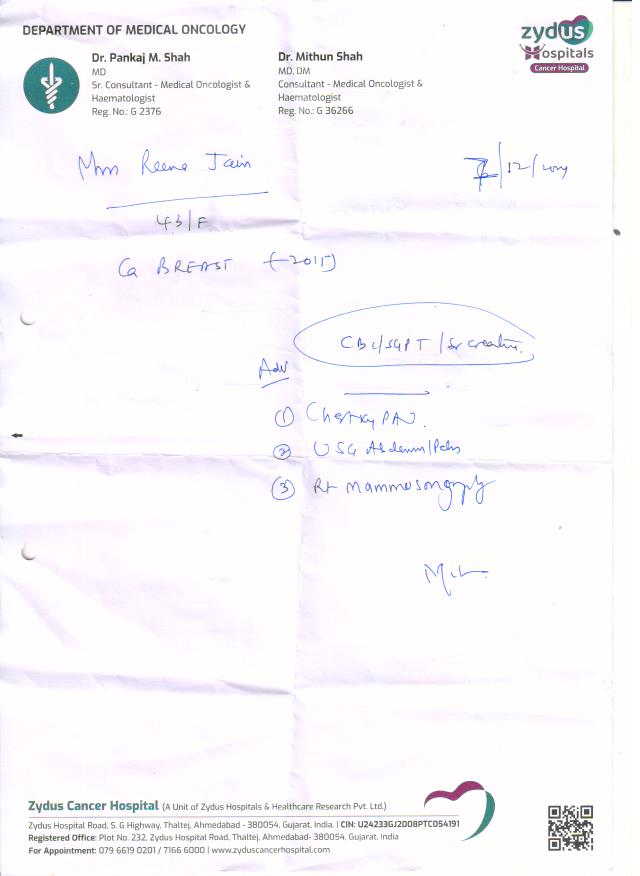 DEPARTMENT OF MEDICAL ONCOLOGY
zydus
Hospitals
Cancer Hospital
Dr. Pankaj M. Shah
MD
Sr. Consultant - Medical Oncologist &
Haematologist
Reg. No.: G 2376
Dr. Mithun Shah
MD, DM
Consultant - Medical Oncologist &
Haematologist
Reg. No.: G 36266
Reena Jain
/12/
43/F
Ca BREAST (-2015)
CBC/SGPT/Sr creatin.
Adv
① Chest X ray PA
② USG Abdomen/Pelvis
③ Rt mammosonography
Zydus Cancer Hospital (A Unit of Zydus Hospitals & Healthcare Research Pvt. Ltd.)
Zydus Hospital Road, S. G Highway, Thaltej, Ahmedabad - 380054, Gujarat, India. | CIN: U24233GJ2008PTC054191
Registered Office: Plot No. 232, Zydus Hospital Road, Thaltej, Ahmedabad- 380054, Gujarat, India
For Appointment: 079 6619 0201 / 7166 6000 | www.zyduscancerhospital.com